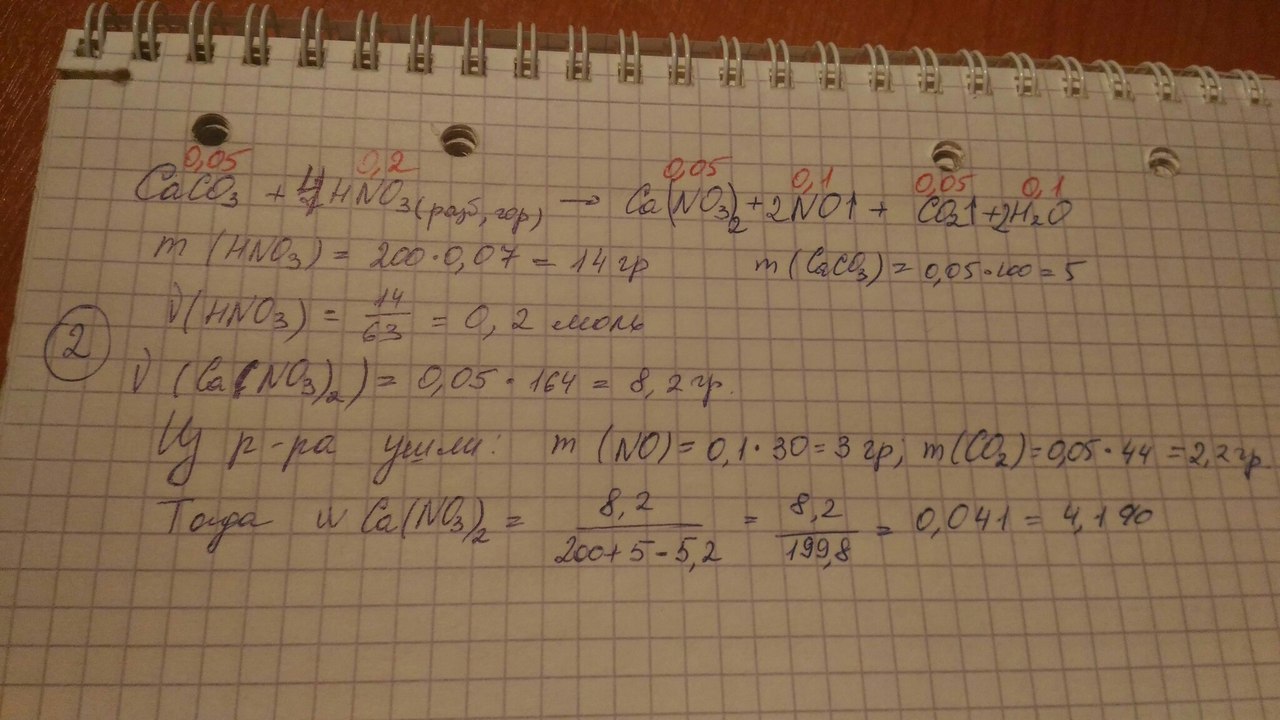 0,05 0,2 0,05 0,1 0,05 0,1
CaCO3 + 4HNO3(разб, гор) → Ca(NO3)2 + 2NO↑ + CO2↑ + 2H2O
m (HNO3) = 200·0,07 = 14 гр m (CaCO3) = 0,05·100 = 5
ν (HNO3) = 14/63 = 0,2 моль
2
ν (Ca(NO3)2) = 0,05 · 164 = 8,2 гр.
Из р-ра ушли: m (NO) = 0,1·30 = 3 гр; m (CO2) = 0,05·44 = 2,2 гр.
Тогда w Ca(NO3)2 = 8,2/200+5-5,2 = 8,2/199,8 = 0,041 = 4,1%